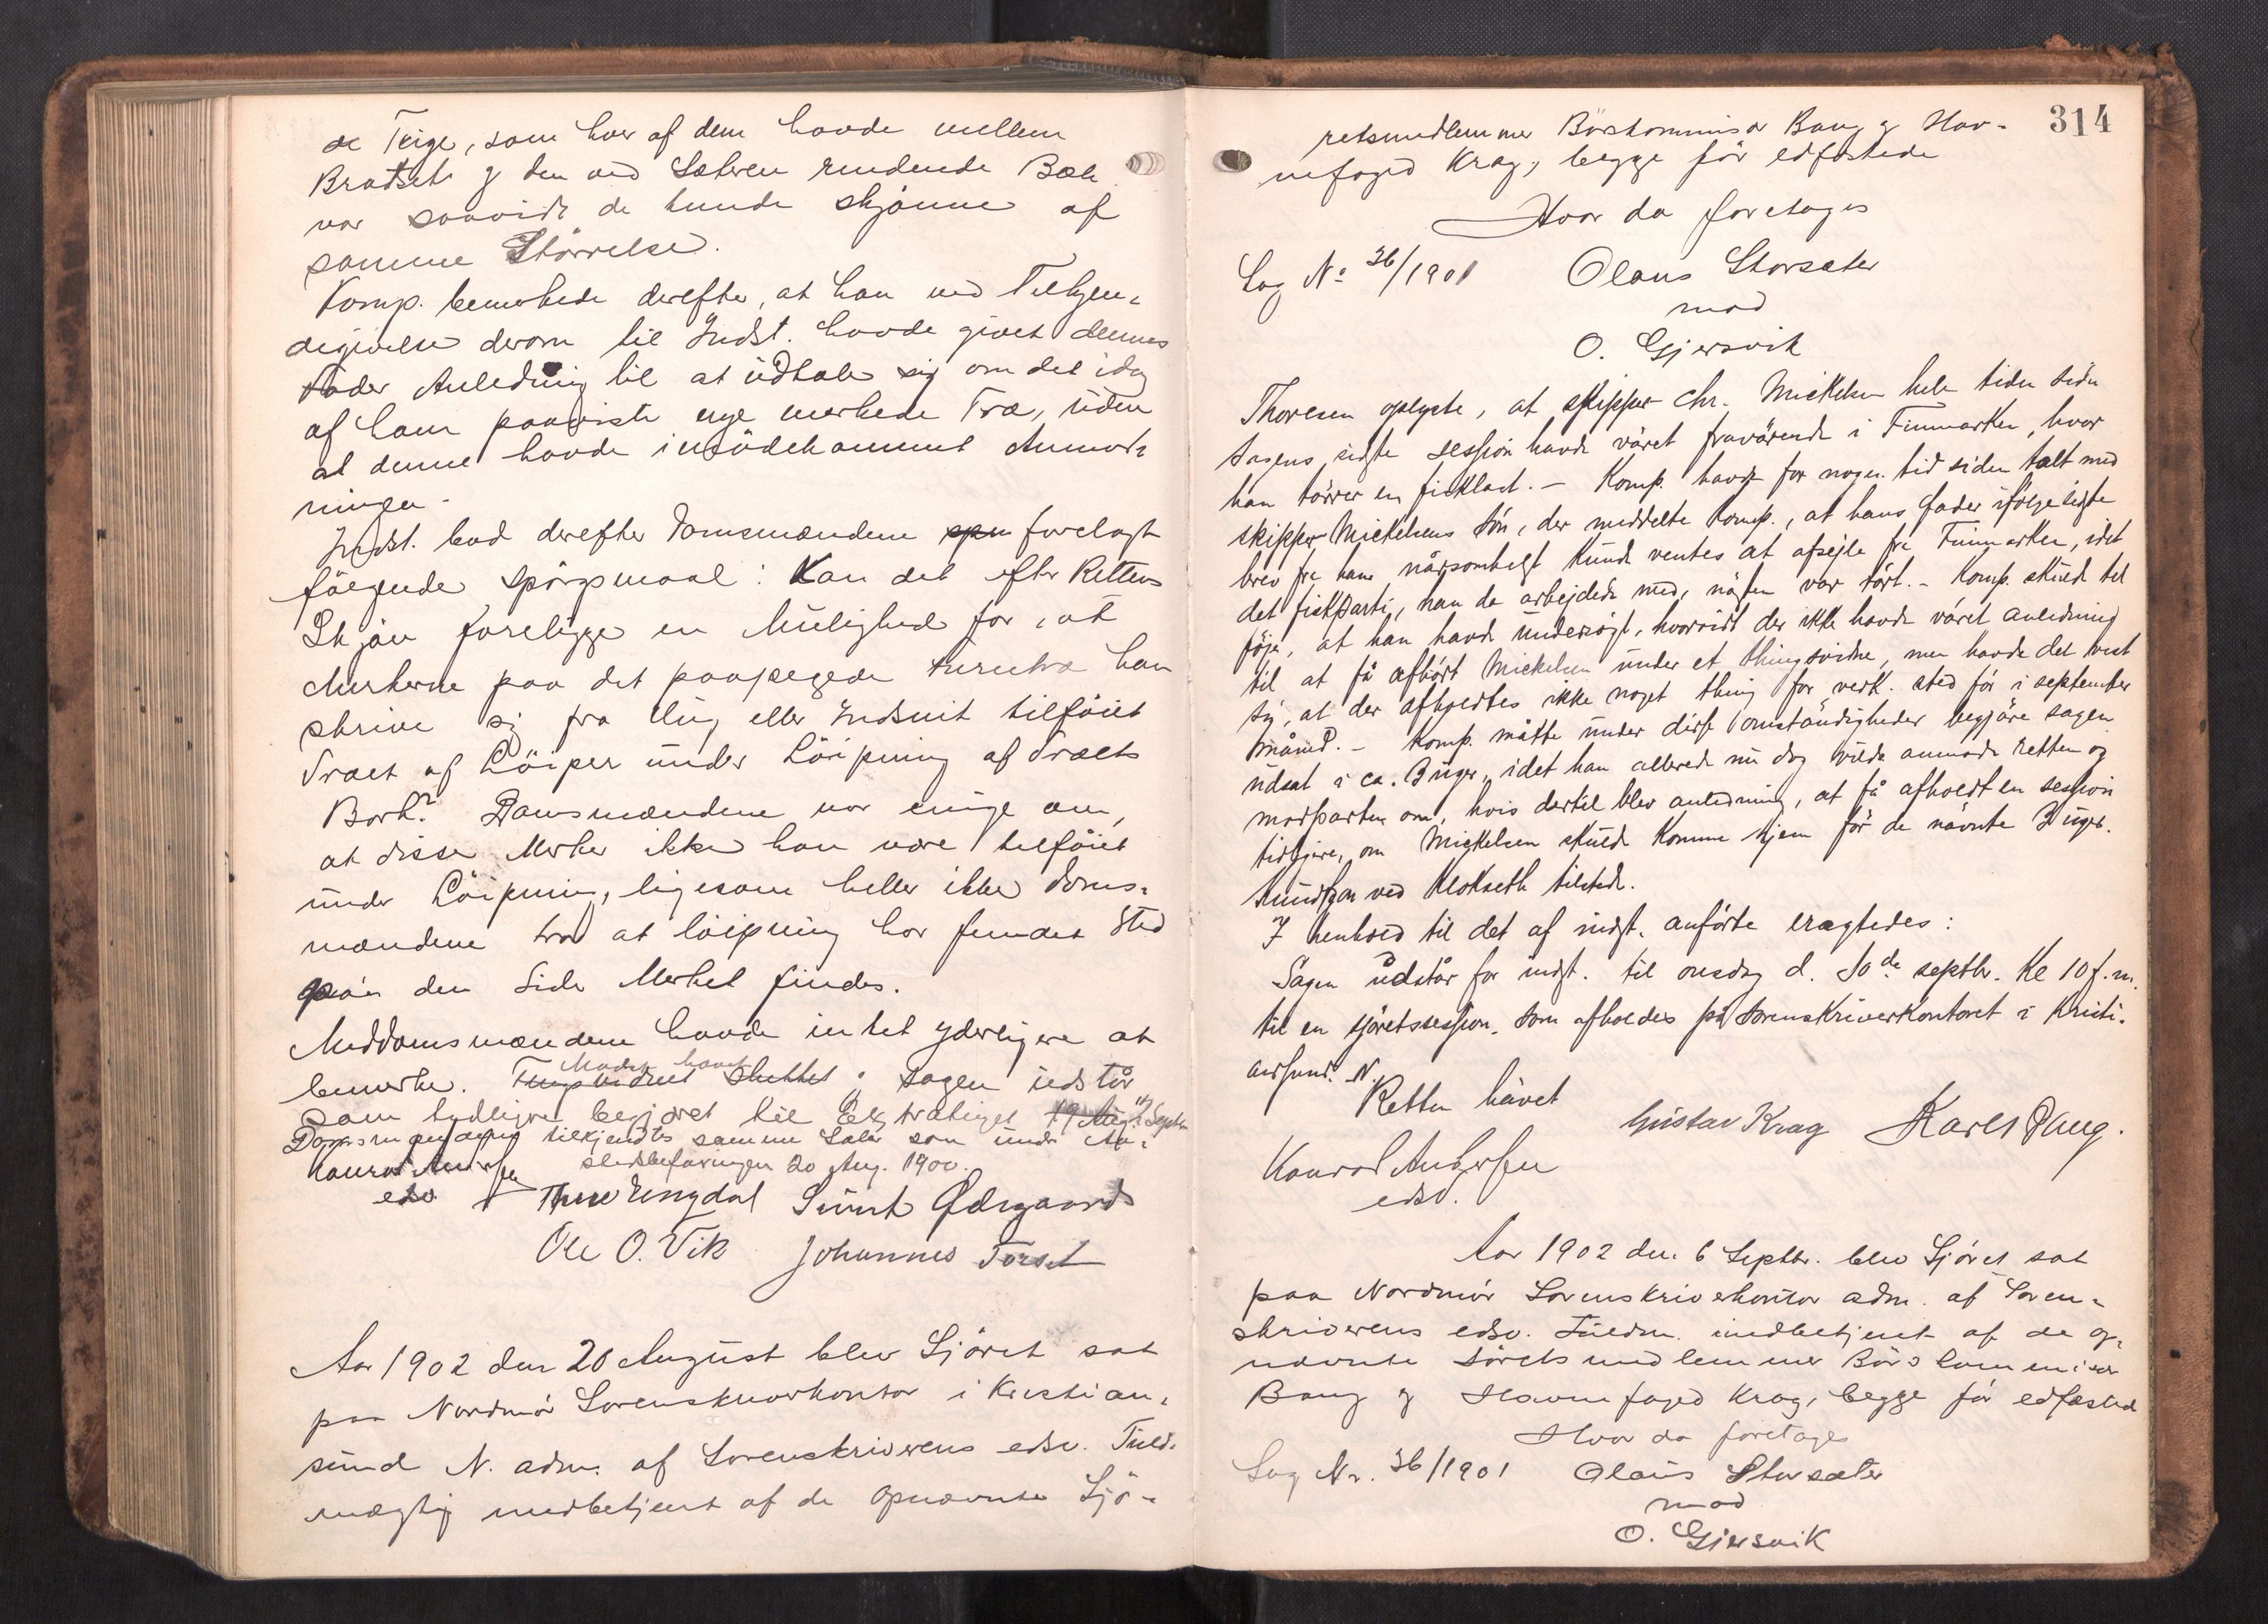 de Teige, som hver af dem havde mellem
Bratset & den ved Sæteren rindende Bæk
var saavidt de kunde skjønne af
samme Størrelse.
Komp. bemerkede derefter, at han ved Tilkjen-
degivelse derom til Indst. havde givet dennes
Fader Anledning til at udtale sig om det idag
af ham paaviste nye merkede Træ, uden
at denne havde imødekommet Anmod-
ningen.
Indst. bad derefter Domsmændene forelagt
følgende Spørgsmaal: Kan det efter Rettens
Skjøn foreligge en Mulighed for, at
Merkerne paa det paapegede Furutræ kan
skrive sig fra Hug eller Indsnit tilføiet
Træet af Löiper under Löipning af Træets
Bork? Domsmændene var enige om,
at disse Merker ikke kan være tilføiet
under Löipning, ligesom heller ikke Doms-
mændene tror at löipning har fundet Sted
paa den Side Merket findes.
Meddomsmændene havde intet yderligere at
bemerke. Mødet hævet. Sagen udstår
som tydligere begjæret til Extratinget 19 Aug. Septb
Domsmændene tilkjendtes samme Salær som under Aa-
stedsbefaringen 20 Aug. 1900.
Konrad Andersen
edsv
Thore Engdal Sivert Ødegaard
Ole O. Vik Johannes Torset
Aar 1902 den 20 August blev Sjöret sat
paa Nordmör Sorenskriverkontor i Kristian-
sund N. adm. af Sorenskriverens edsv. Fuld-
mægtig medbetjent af de opnævnte Sjö-
314
retsmedlemmer Börskommisær Bang & Hav-
nefoged Krag, begge før edfæstede
Hvor da foretages
Sag No 36/1901 Olaus Storsæter
mod
O. Gjersvik
Thoresen oplyste, at skipper Chr. Mickelsen hele tiden siden
sagens sidste session havde været fraværende i Finmarken, hvor
han tørrer en fisklast. - Komp. havde for nogen tid siden talt med
skipper Mickelsens søn, der meddelte komp., at hans fader ifølge sidste
brev fra ham nårsomhelst kunde ventes at afsejle fra Finmarken, idet
det fiskparti, han da arbejdede med, næsten var tørt. - Komp. skulde til-
føje, at han havde undersøgt, hvorvidt der ikke havde været anledning
til at få afhørt Mickelsen under et thingsvidne, men havde det vist
sig, at der afholdtes ikke noget thing for vedk. sted før i september
måned. - Komp. måtte under disse omstændigheder begjære sagen
udsat i ca. 3 uger, idet han allerede nu dog vilde anmode retten og
modparten om, hvis dertil blev anledning, at få afholdt en session
tidligere, om Mickelsen skulde komme hjem før de nævnte 3 uger.
Knudtzon ved Klokseth tilstede.
I henhold til det af indst. anførte eragtedes:
Sagen udstår for indst. til onsdag d. 10de septbr. Kl 10 f.m.
til en sjøretssession, som afholdes på sorenskriverkontoret i Kristi-
ansund. N.
Retten hævet
Gustav Krag Karl Bang.
Konrad Andersen
edsv.
Aar 1902 den 6 Septbr. blev Sjöret sat
paa Nordmör Sorenskriverkontor adm. af Soren-
skriverens edsv. Fuldm. medbetjent af de op-
nævnte Sörets medlemmer Börskommisær
Bang & Havnefoged Krag, begge før edfæsted
Hvor da foretages
Sag Nr. 36/1901 Olaus Storsæter
mod
O. Gjersvik